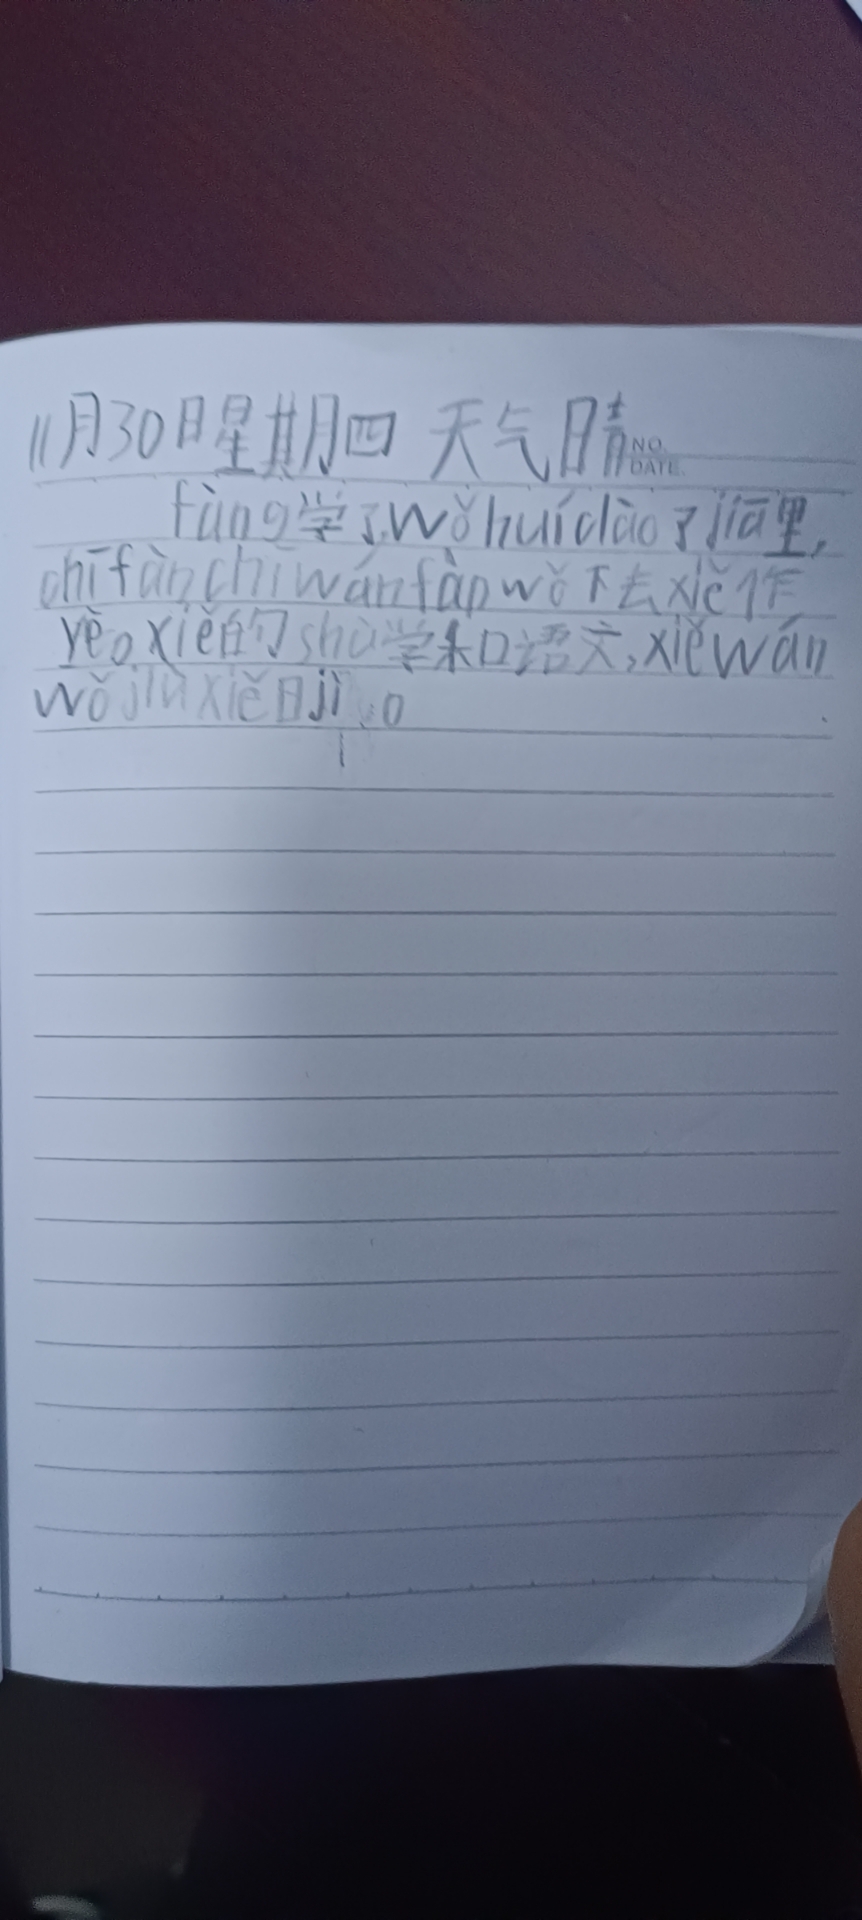 11月30日星期四 天气晴
NO.
DATE.
fàng学了,wǒhuídào了jiā里,
chīfànchīwánfànwǒ下去xiě作
yè。xiě的shù学和语文,xiěwán
wǒjiùxiě日jì。